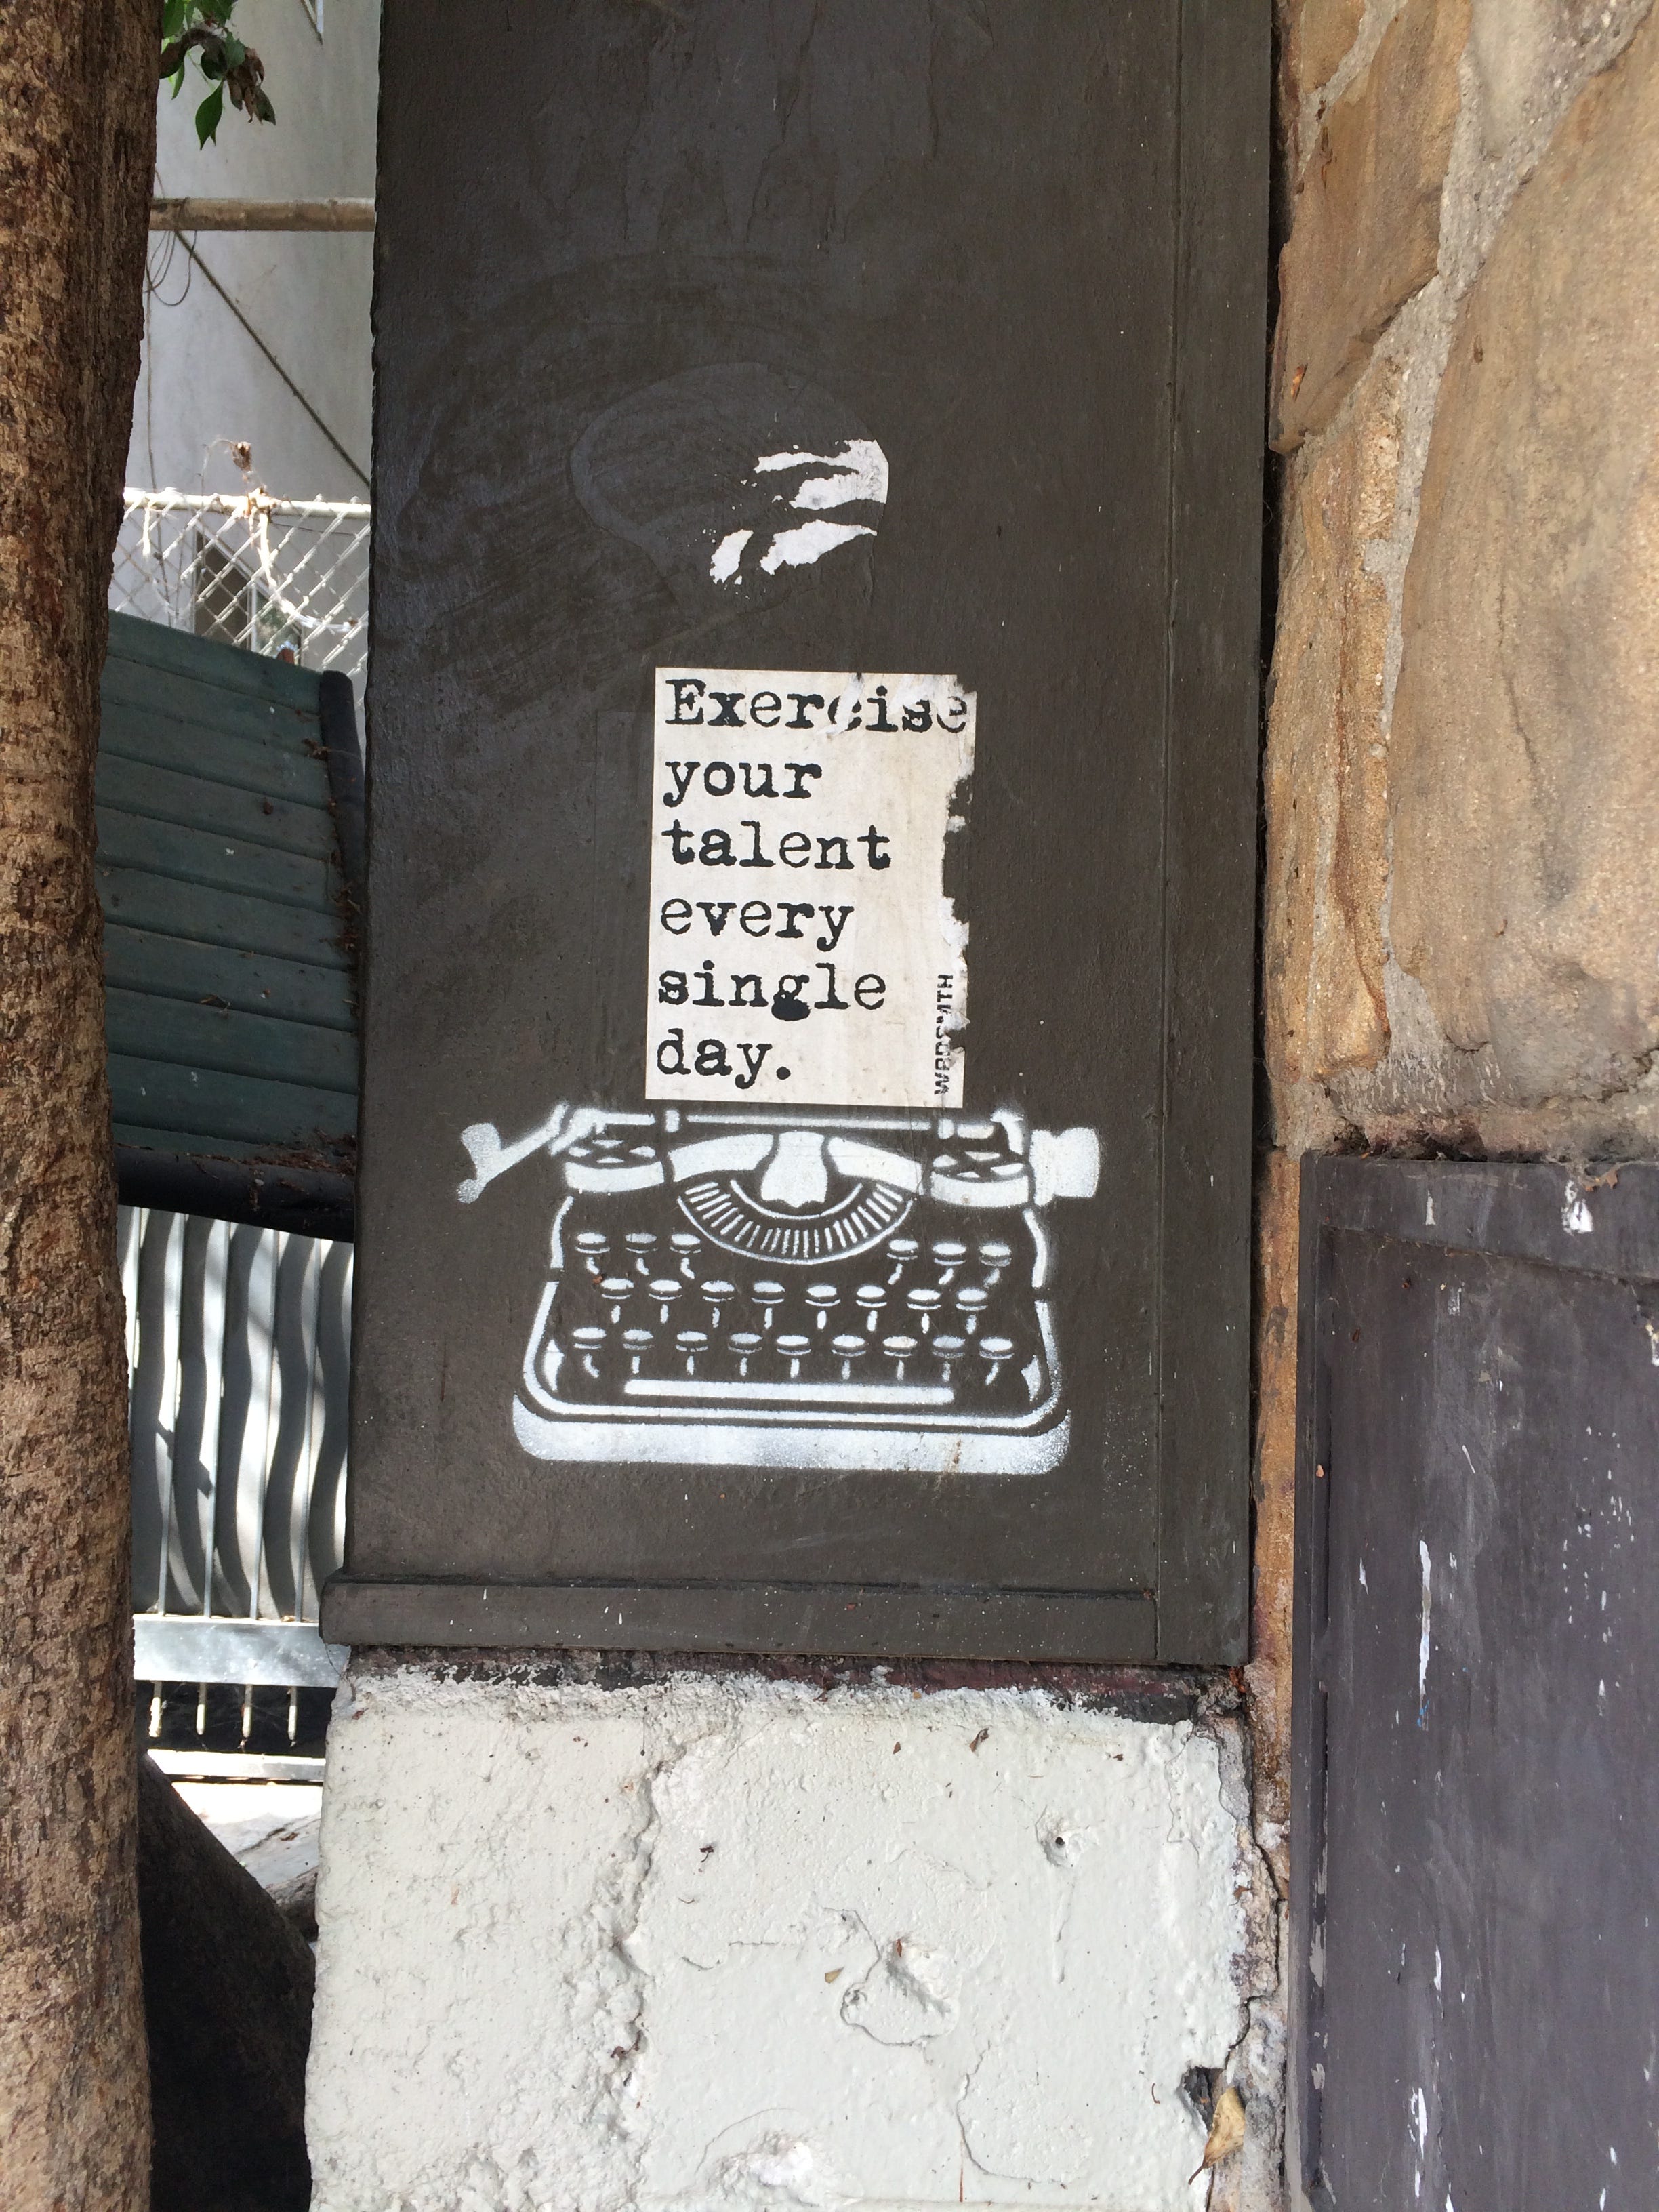 Exercise
your
talent
every
single
day.
WRDSMTH